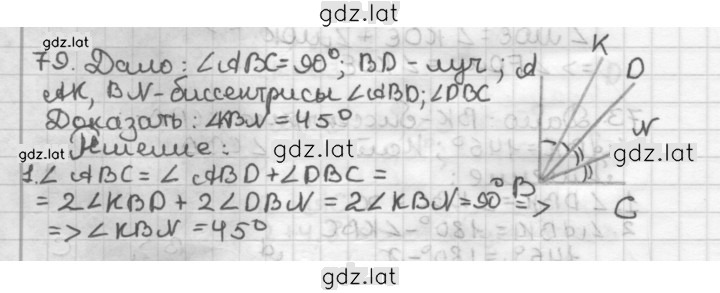 gdz.lat
gdz.lat
79. Дано: ∠ABC=90°; BD - луч;
AK, BN - биссектрисы ∠ABD; ∠DBC
Доказать: ∠KBN = 45°
Решение:
gdz.lat
gdz.lat
1. ∠ABC = ∠ABD + ∠DBC =
= 2∠KBD + 2∠DBN = 2∠KBN = 90° =>
=> ∠KBN = 45°
A
K
D
N
gdz.lat
B
C
gdz.lat